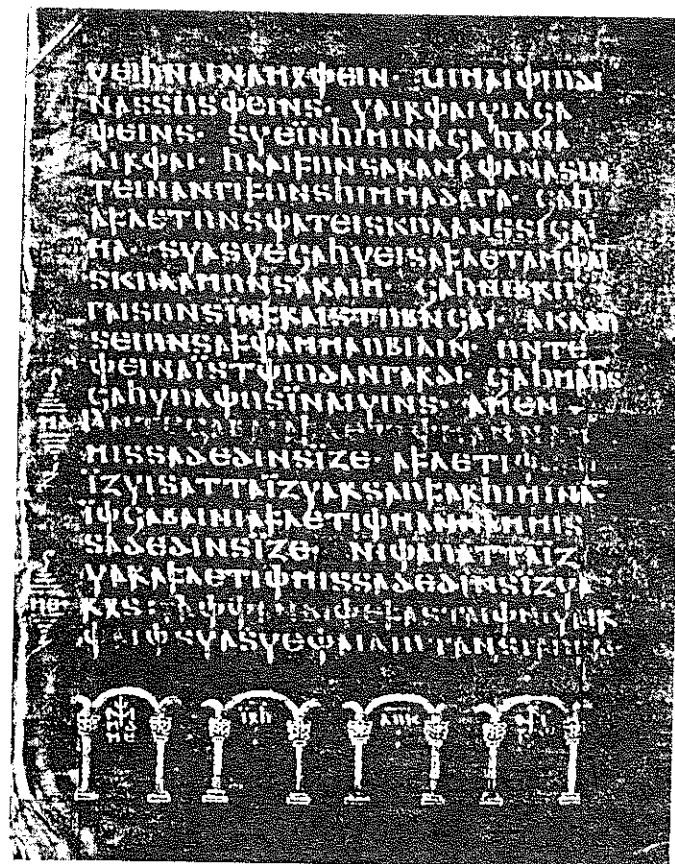 𐍅𐌴𐌹𐌷𐌽𐌰𐌹𐌽𐌰𐌼𐍉𐌸𐌴𐌹𐌽· 𐌵𐌹𐌼𐌰𐌹𐌸𐌹𐌿𐌳𐌹
𐌽𐌰𐍃𐍃𐌿𐍃𐌸𐌴𐌹𐌽𐍃· 𐍅𐌰𐌹𐍂𐌸𐌰𐌹𐍅𐌹𐌻𐌾𐌰
𐌸𐌴𐌹𐌽𐍃· 𐍃𐍅𐌴𐌹̈𐌽𐌷𐌹𐌼𐌹𐌽𐌰𐌾𐌰𐌷𐌰𐌽𐌰
𐌰𐌹𐍂𐌸𐌰𐌹· 𐌷𐌻𐌰𐌹𐍆𐌿𐌽𐍃𐌰𐍂𐌰𐌽𐌰𐌸𐌰𐌽𐌰𐍃𐌹𐌽
𐍄𐌴𐌹𐌽𐌰𐌽𐌲𐌹𐍆𐌿𐌽𐍃𐌷𐌹𐌼𐌼𐌰𐌳𐌰𐌲𐌰· 𐌾𐌰𐌷
𐌰𐍆𐌻𐌴𐍄𐌿𐌽𐍃𐌸𐌰𐍄𐌴𐌹𐍃𐌺𐌿𐌻𐌰𐌽𐍃𐍃𐌹𐌾𐌰𐌹
𐌼𐌰· 𐍃𐍅𐌰𐍃𐍅𐌴𐌾𐌰𐌷𐍅𐌴𐌹𐍃𐌰𐍆𐌻𐌴𐍄𐌰𐌼𐌸𐌰𐌹
𐍃𐌺𐌿𐌻𐌰𐌼𐌿𐌽𐍃𐌰𐍂𐌰𐌹𐌼· 𐌾𐌰𐌷𐌽𐌹𐌱𐍂𐌹𐌲
𐌲𐌰𐌹𐍃𐌿𐌽𐍃𐌹̈𐌽𐍆𐍂𐌰𐌹𐍃𐍄𐌿𐌱𐌽𐌾𐌰𐌹· 𐌰𐌺𐌻𐌰𐌿
𐍃𐌴𐌹𐌿𐌽𐍃𐌰𐍆𐌸𐌰𐌼𐌼𐌰𐌿𐌱𐌹𐌻𐌹𐌽· 𐌿𐌽𐍄𐌴
𐌸𐌴𐌹𐌽𐌰𐌹̈𐍃𐍄𐌸𐌹𐌿𐌳𐌰𐌽𐌲𐌰𐍂𐌳𐌹· 𐌾𐌰𐌷𐌼𐌰𐌷𐍄𐍃
𐌾𐌰𐌷𐍅𐌿𐌻𐌸𐌿𐍃𐌹̈𐌽𐌰𐌹𐍅𐌹𐌽𐍃· 𐌰𐌼𐌴𐌽·
𐌿𐌽𐍄𐌴𐌾𐌰𐌱𐌰𐌹𐌰𐍆𐌻𐌴𐍄𐌹𐌸𐌼𐌰𐌽𐌽𐌰𐌼
𐌼𐌹𐍃𐍃𐌰𐌳𐌴𐌳𐌹𐌽𐍃𐌹𐌶𐌴· 𐌰𐍆𐌻𐌴𐍄𐌹𐌸𐌾𐌰𐌷
𐌹̈𐌶𐍅𐌹𐍃𐌰𐍄𐍄𐌰𐌹̈𐌶𐍅𐌰𐍂𐍃𐌰𐌿𐍆𐌰𐍂𐌷𐌹𐌼𐌹𐌽𐌰·
𐌹̈𐌸𐌾𐌰𐌱𐌰𐌹𐌽𐌹𐌰𐍆𐌻𐌴𐍄𐌹𐌸𐌼𐌰𐌽𐌽𐌰𐌼𐌼𐌹𐍃
𐍃𐌰𐌳𐌴𐌳𐌹𐌽𐍃𐌹̈𐌶𐌴· 𐌽𐌹𐌸𐌰𐌿𐌰𐍄𐍄𐌰𐌹𐌶
𐍅𐌰𐍂𐌰𐍆𐌻𐌴𐍄𐌹𐌸𐌼𐌹𐍃𐍃𐌰𐌳𐌴𐌳𐌹𐌽𐍃𐌹𐌶𐍅𐌰
𐍂𐍉𐍃: 𐌰𐌸𐌸𐌰𐌽𐌱𐌹𐌸𐌴𐍆𐌰𐍃𐍄𐌰𐌹𐌸𐌽𐌹𐍅𐌰𐌹𐍂
𐌸𐌰𐌹𐌸𐍃𐍅𐌰𐍃𐍅𐌴𐌸𐌰𐌹𐌻𐌹𐌿𐍄𐌰𐌽𐍃